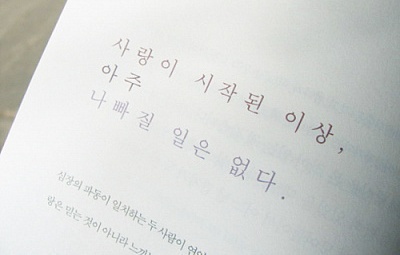 사랑이 시작된 이상,
아주
나빠질 일은 없다.
심장의 파동이 일치하는 두 사람이
않은 믿는 것이 아니라